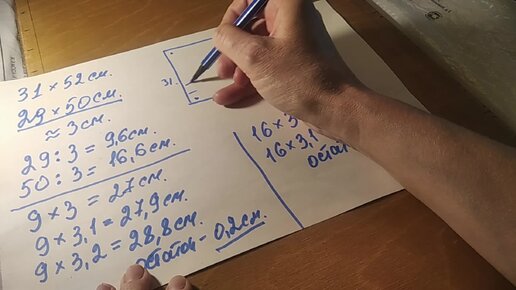 31 × 52 см.
29 × 50 см.
≈ 3 см.
29 : 3 = 9,6 см.
50 : 3 = 16,6 см.
9 × 3 = 27 см.
9 × 3,1 = 27,9 см.
9 × 3,2 = 28,8 см.
остаток - 0,2 см.
31
16 × 3
16 × 3,1
остат